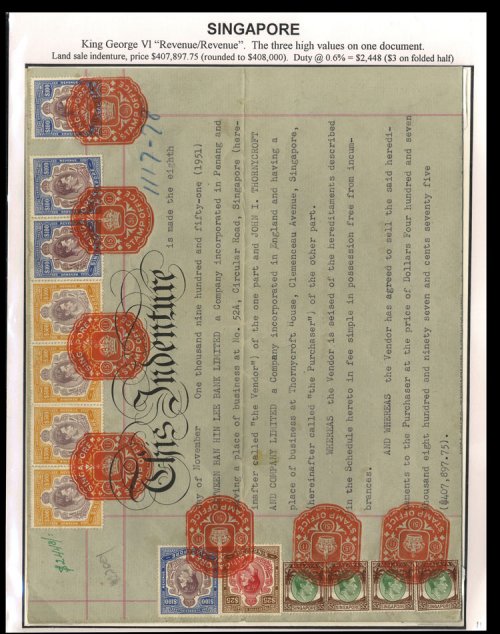 SINGAPORE
King George VI "Revenue/Revenue". The three high values on one document.
Land sale indenture, price $407,897.75 (rounded to $408,000). Duty @ 0.6% = $2,448 ($3 on folded half)
1117-78
This Indenture is made the eighth
y of November One thousand nine hundred and fifty-one (1951)
WEEN BAN HIN LEE BANK LIMITED a Company incorporated in Penang and
ving a place of business at No. 52A, Circular Road, Singapore (here-
inafter called "the Vendor") of the one part and JOHN I. THORNYCROFT
AND COMPANY LIMITED a Company incorporated in England and having a
place of business at Thornycroft House, Clemenceau Avenue, Singapore,
(hereinafter called "the Purchaser") of the other part.
WHEREAS the Vendor is seised of the hereditaments described
in the Schedule hereto in fee simple in possession free from incum-
brances.
AND WHEREAS the Vendor has agreed to sell the said heredi-
ments to the Purchaser at the price of Dollars Four hundred and seven
housand eight hundred and ninety seven and cents seventy five
($407,897.75).
$2448/-
STAMP OFFICE
STAMP OFFICE
STAMP OFFICE
STAMP OFFICE
STAMP OFFICE
STAMP OFFICE
STAMP OFFICE
$100
$100
$100
$100
$25
SINGAPORE
SINGAPORE
SINGAPORE
SINGAPORE